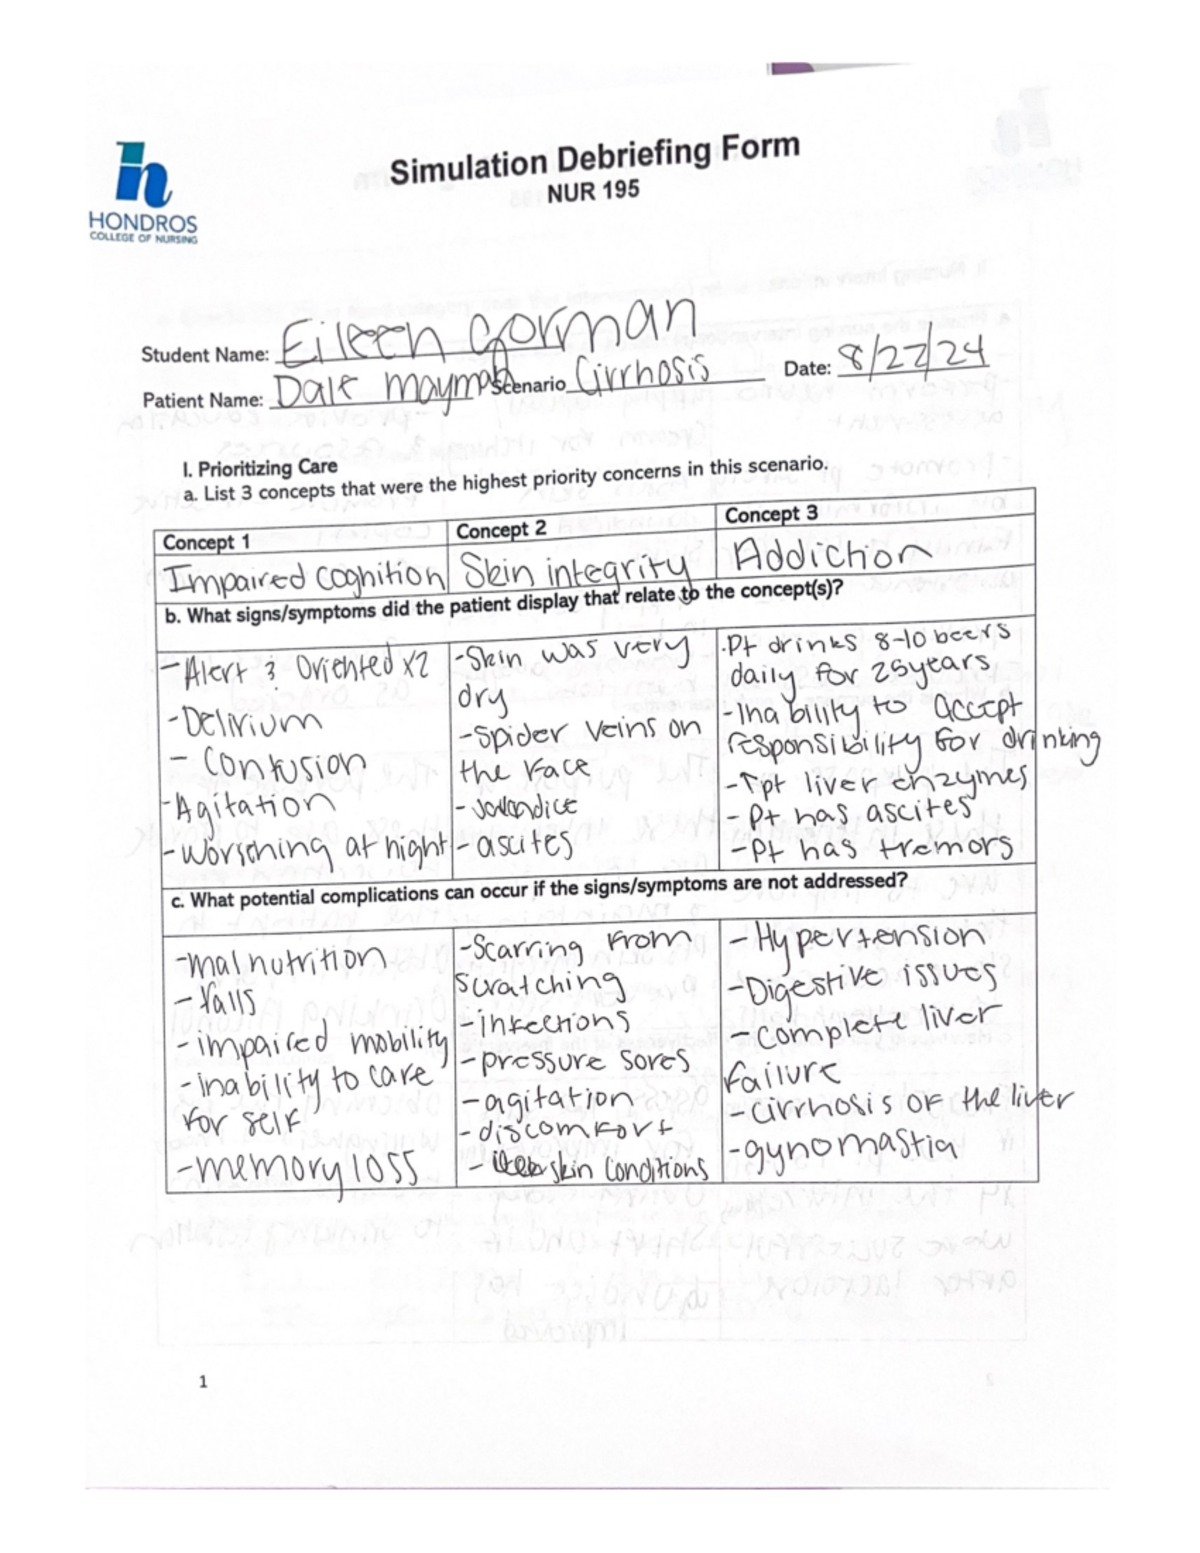 Simulation Debriefing Form
NUR 195
HONDROS
COLLEGE OF NURSING
Student Name: Eileen Gorman
Patient Name: Dale Scenario Cirrhosis Date: 8/27/24
I. Prioritizing Care
a. List 3 concepts that were the highest priority concerns in this scenario.
Concept 1
Impaired cognition
Concept 2
Skin integrity
Concept 3
Addiction
b. What signs/symptoms did the patient display that relate to the concept(s)?
- Alert & Oriented x2
- Delirium
- Confusion
- Agitation
- Worsening at night
- Skin was very
dry
- Spider veins on
the face
- ascites
- Pt drinks 8-10 beers
daily for 25 years
- Inability to accept
responsibility for drinking
- ↑ pt liver enzymes
- Pt has ascites
- Pt has tremors
c. What potential complications can occur if the signs/symptoms are not addressed?
- malnutrition
- falls
- impaired mobility
- inability to care
for self
- memory loss
- Scarring from
scratching
- infections
- pressure sores
- agitation
- discomfort
- skin conditions
- Hypertension
- Digestive issues
- Complete liver
failure
- cirrhosis of the liver
- gynomastia
1